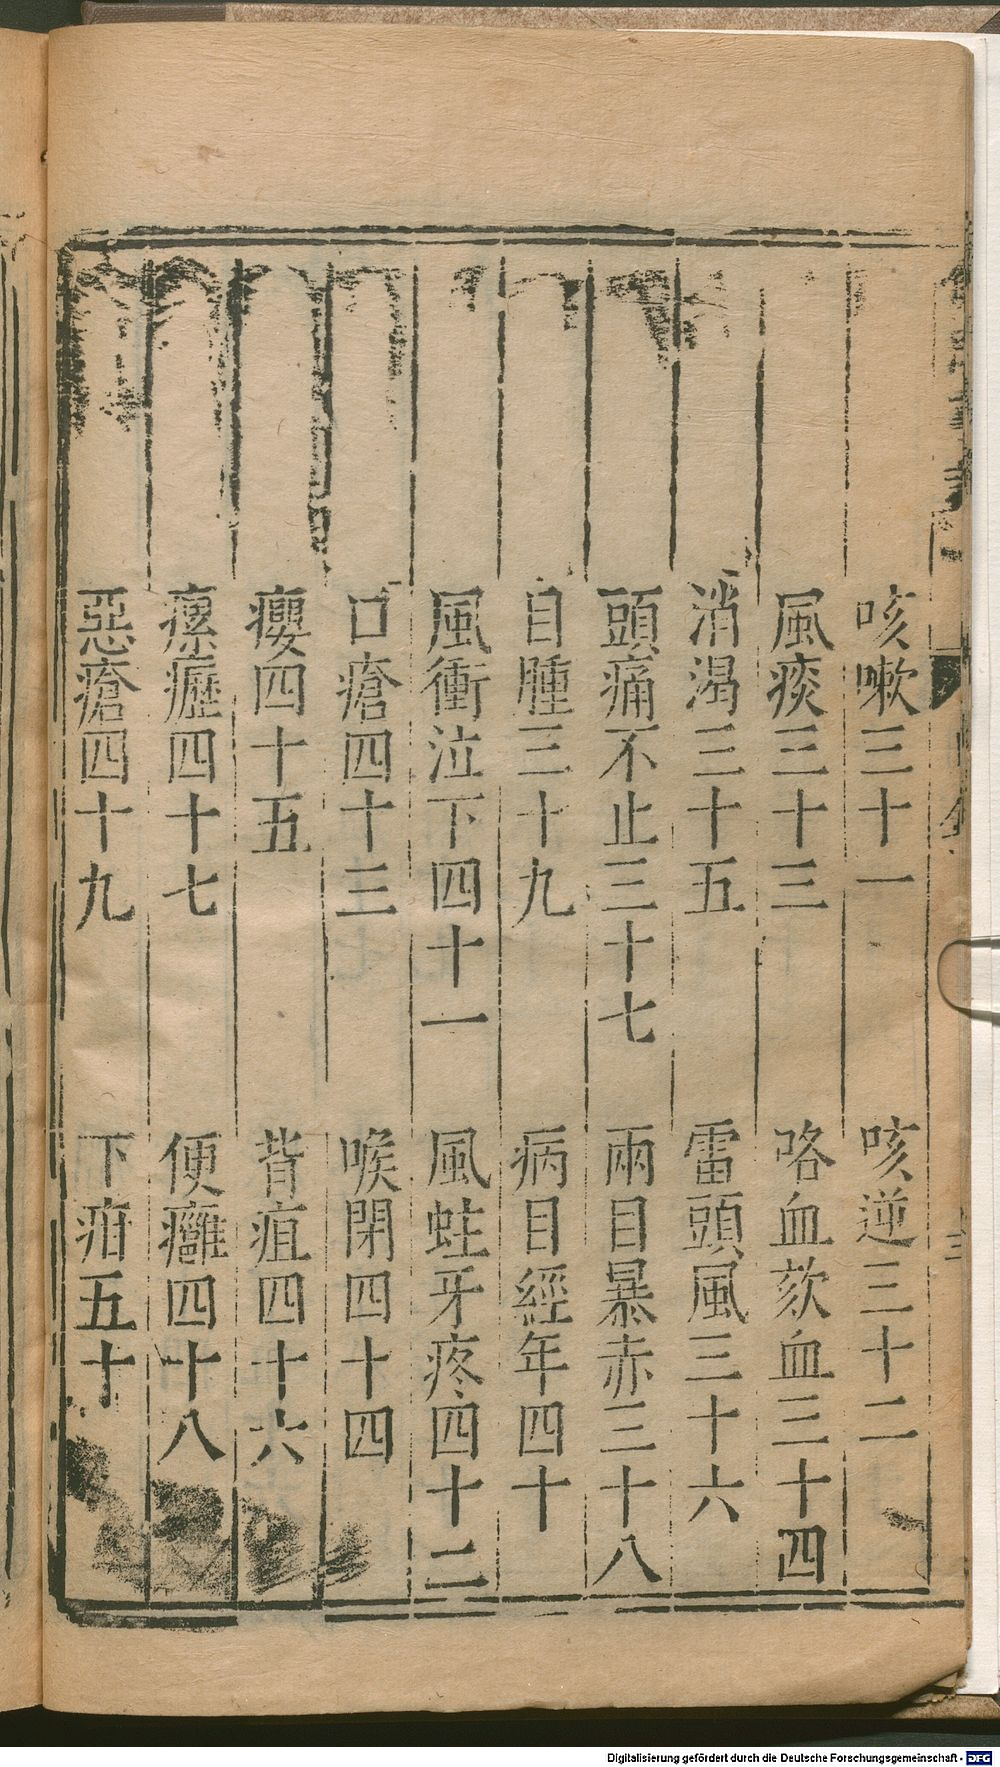 咳嗽三十一　咳逆三十二
風痰三十三　咯血欬血三十四
消渴三十五　雷頭風三十六
頭痛不止三十七　兩目暴赤三十八
目腫三十九　病目經年四十
風衝泣下四十一　風蛀牙疼四十二
口瘡四十三　喉閉四十四
癭四十五　背疽四十六
瘰癧四十七　便癰四十八
惡瘡四十九　下疳五十
Digitalisierung gefördert durch die Deutsche Forschungsgemeinschaft - DFG